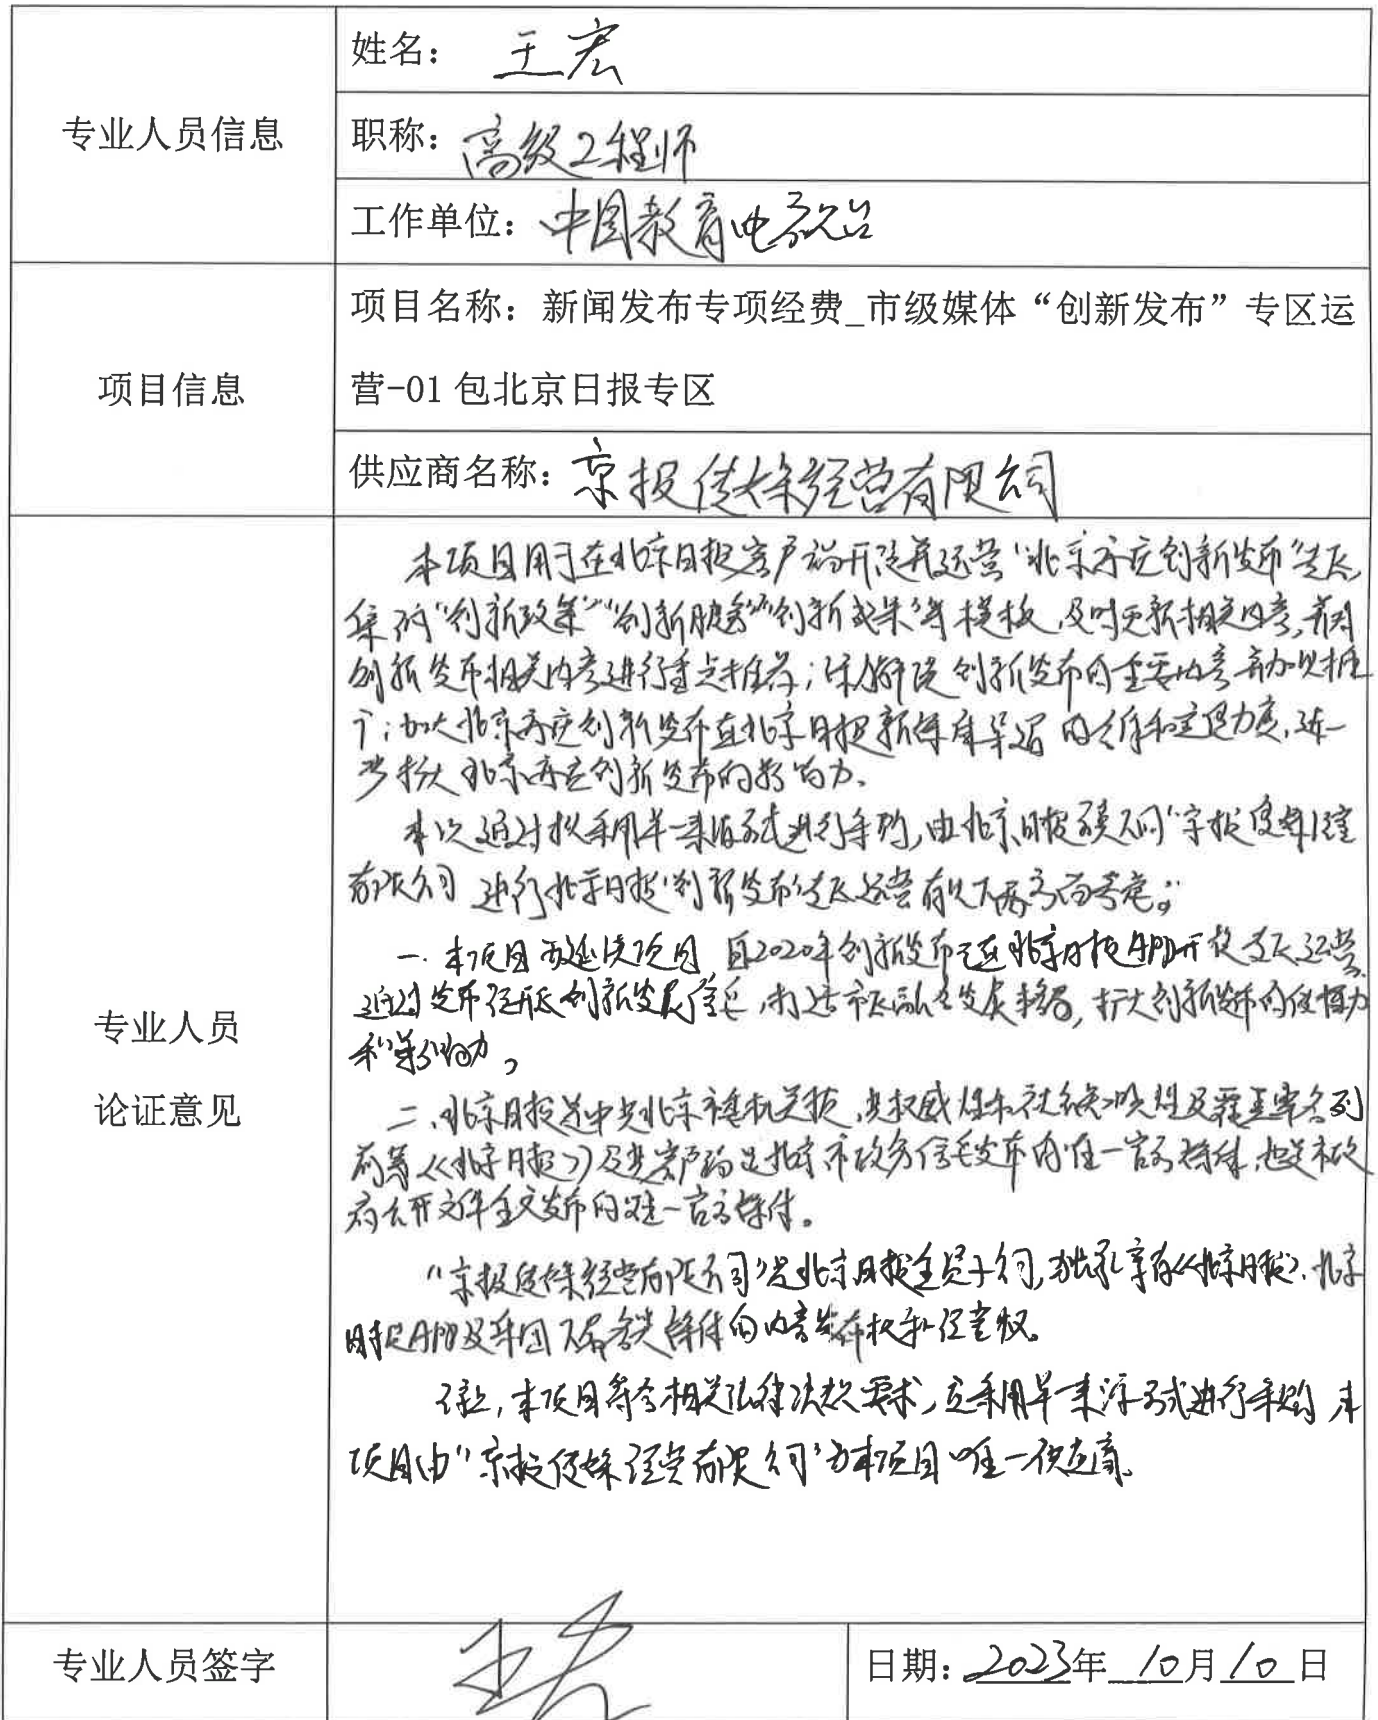 专业人员信息
姓名：王宏
职称：高级工程师
工作单位：中国教育电视台
项目信息
项目名称：新闻发布专项经费_市级媒体“创新发布”专区运
营-01包北京日报专区
供应商名称：京报传媒经营有限公司
专业人员
论证意见
本项目用于在北京日报客户端开设并运营“北京市应创新发布”专区，
集纳“创新政策”“创新服务”“创新成果”等模板，及时更新相关内容，并对
创新发布相关内容进行重点推荐；创新发布的重要内容并加以推
广；加大北京创新发布在北京日报新媒体的合作和力度，进一
步扩大北京创新发布的影响力。
本次通过拟采用单一来源方式进行采购，由北京日报“京报传媒经营
有限公司”进行北京日报“创新发布”专区运营有以下两方面考虑：
一、本项目为延续项目，自2020年创新发布已在北京日报APP开设专区运营，
通过发布创新发展信息，打造市，扩大创新发布的传播力
和影响力。
二、北京日报是中共北京市委机关报，其权威性和社会及名列
前茅，《北京日报》及其客户端是北京市政务信息发布的唯一官方媒体，也是市政
府公开文件全文发布的唯一官方媒体。
“京报传媒经营有限公司”是北京日报全资子公司，独家享有《北京日报》、北京
日报APP及集团下属各类媒体的内容发布权和经营权。
综上，本项目符合相关法律法规要求，应采用单一来源方式进行采购，本
项目由“京报传媒经营有限公司”为本项目唯一供应商。
专业人员签字
王宏
日期：2023年10月10日